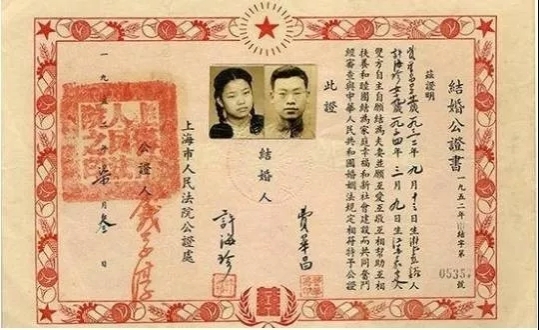 結婚公證書
一九五二年 結字第
號
茲證明
費華昌 歲一九三二年九月十三日生浙江 人
許海珍 歲一九三四年三月九日生江蘇 人
雙方自主自願結為夫妻並願互愛互敬互相幫助互相
扶養和睦團結為家庭幸福和新社會建設而共同奮鬥
經審查與中華人民共和國婚姻法規定相符特予公證
此證
結婚人
費華昌
許海珍
上海市人民法院公證處
公證人 錢
一九五二年柒月叁日